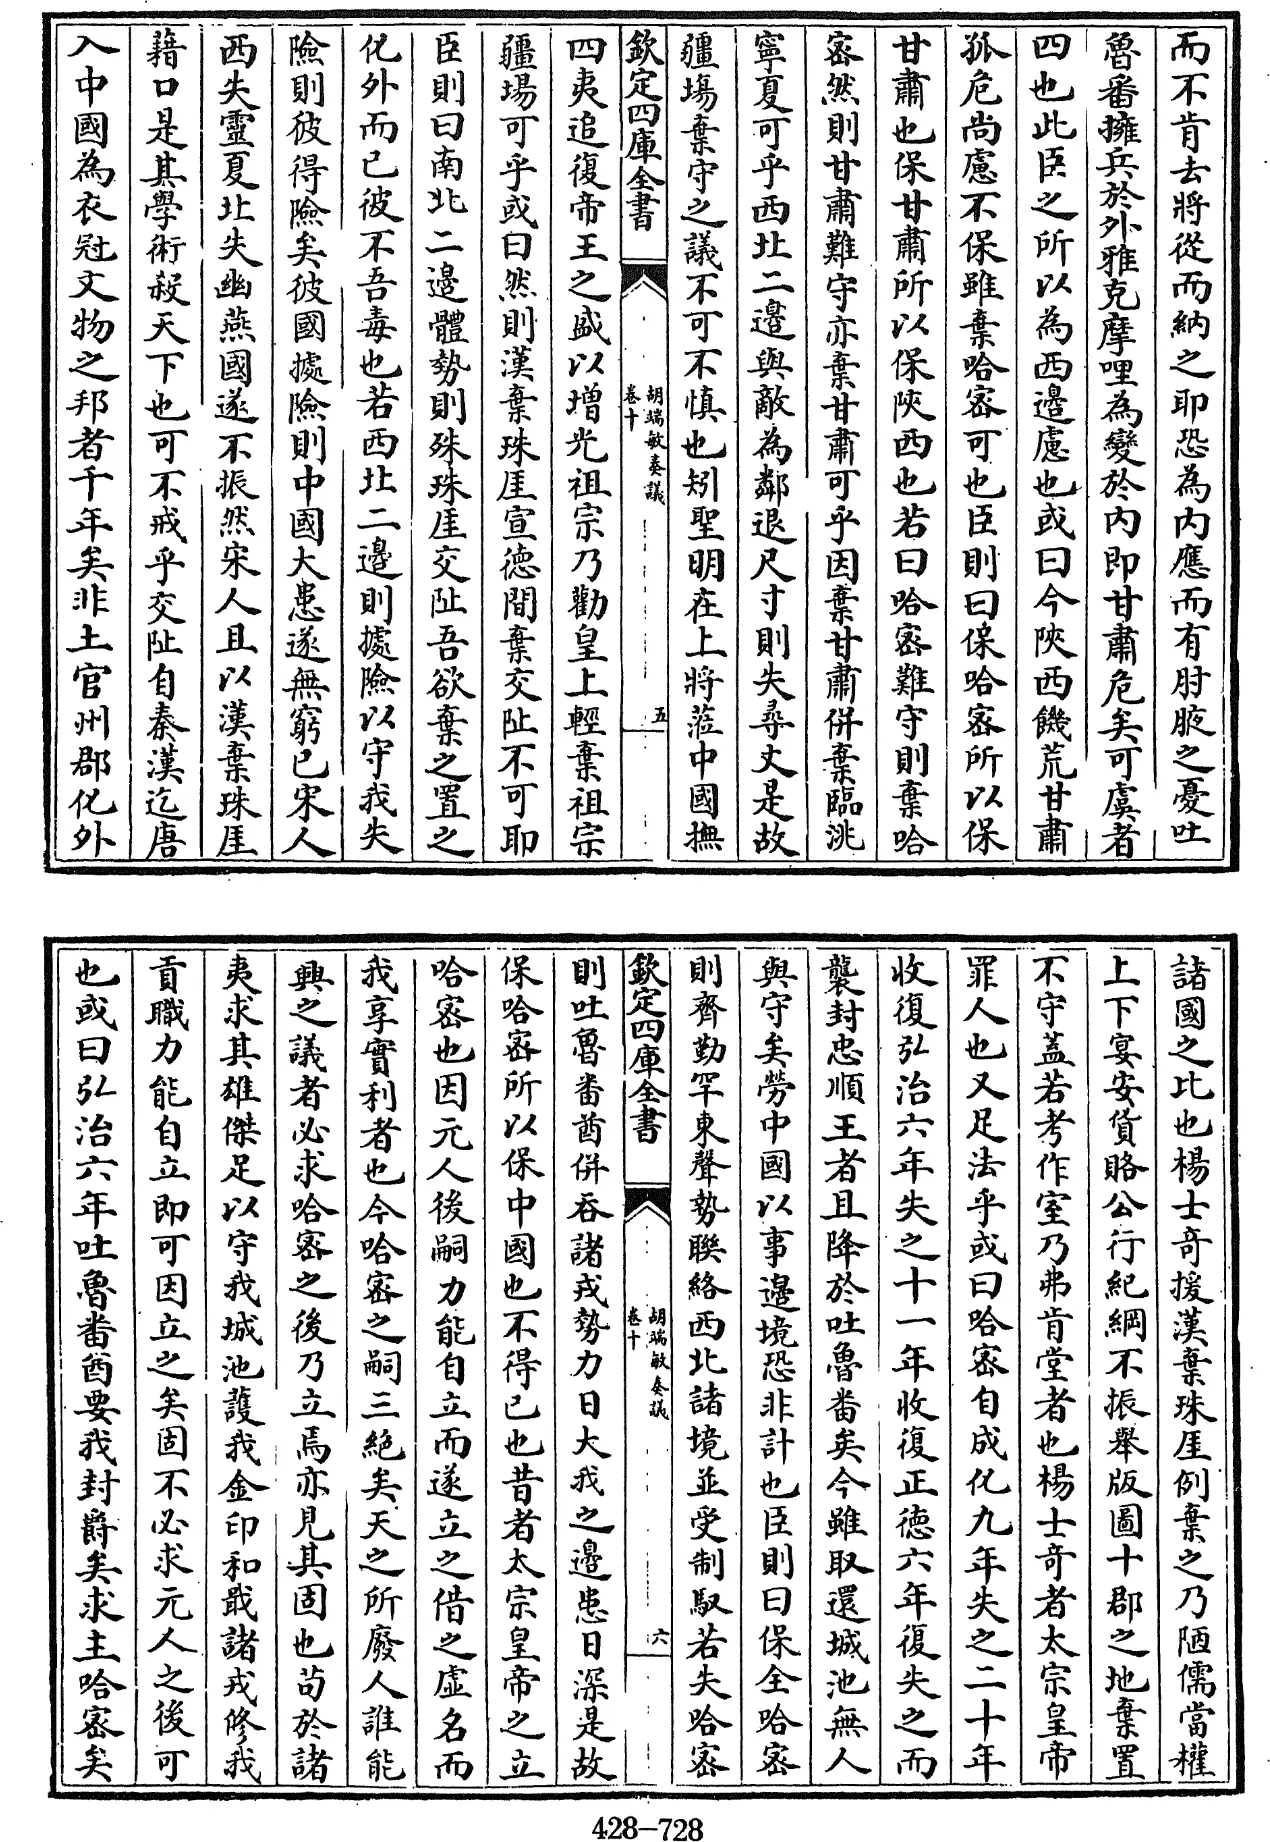 而不肯去將從而納之耶恐為内應而有肘腋之憂吐
魯番擁兵於外雅克摩哩為變於内即甘肅危矣可虞者
四也此臣之所以為西邊慮也或曰今陜西饑荒甘肅
孤危尚慮不保雖棄哈密可也臣則曰保哈密所以保
甘肅也保甘肅所以保陜西也若曰哈密難守則棄哈
密然則甘肅難守亦棄甘肅可乎因棄甘肅併棄臨洮
寧夏可乎西北二邊與敵為鄰退尺寸則失尋丈是故
疆場棄守之議不可不慎也矧聖明在上將蒞中國撫
欽定四庫全書
胡端敏奏議
卷十
五
四夷追復帝王之盛以增光祖宗乃勸皇上輕棄祖宗
疆場可乎或曰然則漢棄珠厓宣德間棄交阯不可耶
臣則曰南北二邊體勢則殊珠厓交阯吾欲棄之置之
化外而已彼不吾毒也若西北二邊則據險以守我失
險則彼得險矣彼國據險則中國大患遂無窮已宋人
西失靈夏北失幽燕國遂不振然宋人且以漢棄珠厓
藉口是其學術殺天下也可不戒乎交阯自秦漢迄唐
入中國為衣冠文物之邦者千年矣非土官州郡化外
諸國之比也楊士奇援漢棄珠厓例棄之乃陋儒當權
上下宴安貨賂公行紀綱不振舉版圖十郡之地棄置
不守葢若考作室乃弗肯堂者也楊士奇者太宗皇帝
罪人也又足法乎或曰哈密自成化九年失之二十年
收復弘治六年失之十一年收復正徳六年復失之而
襲封忠順王者且降於吐魯番矣今雖取還城池無人
與守矣勞中國以事邊境恐非計也臣則曰保全哈密
則齊勤罕東聲勢聯絡西北諸境並受制馭若失哈密
欽定四庫全書
胡端敏奏議
卷十
六
則吐魯番酋併吞諸戎勢力日大我之邊患日深是故
保哈密所以保中國也不得已也昔者太宗皇帝之立
哈密也因元人後嗣力能自立而遂立之借之虛名而
我享實利者也今哈密之嗣三絶矣天之所廢人誰能
興之議者必求哈密之後乃立焉亦見其固也茍於諸
夷求其雄傑足以守我城池護我金印和戢諸戎修我
貢職力能自立即可因立之矣固不必求元人之後可
也或曰弘治六年吐魯番酋要我封爵矣求主哈密矣
428-728